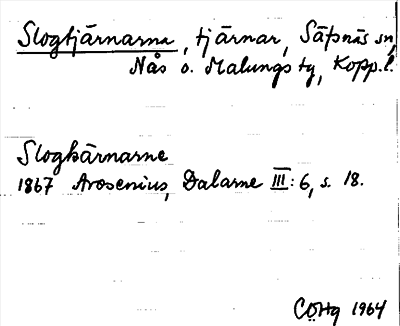 Slogtjärnarna, tjärnar, Säfsnäs sn,
Nås o. Malungs tg, Kopp.l.
Slogkärnarne
1867 Arosenius, Dalarne III: 6, s. 18.
CÖHg 1964